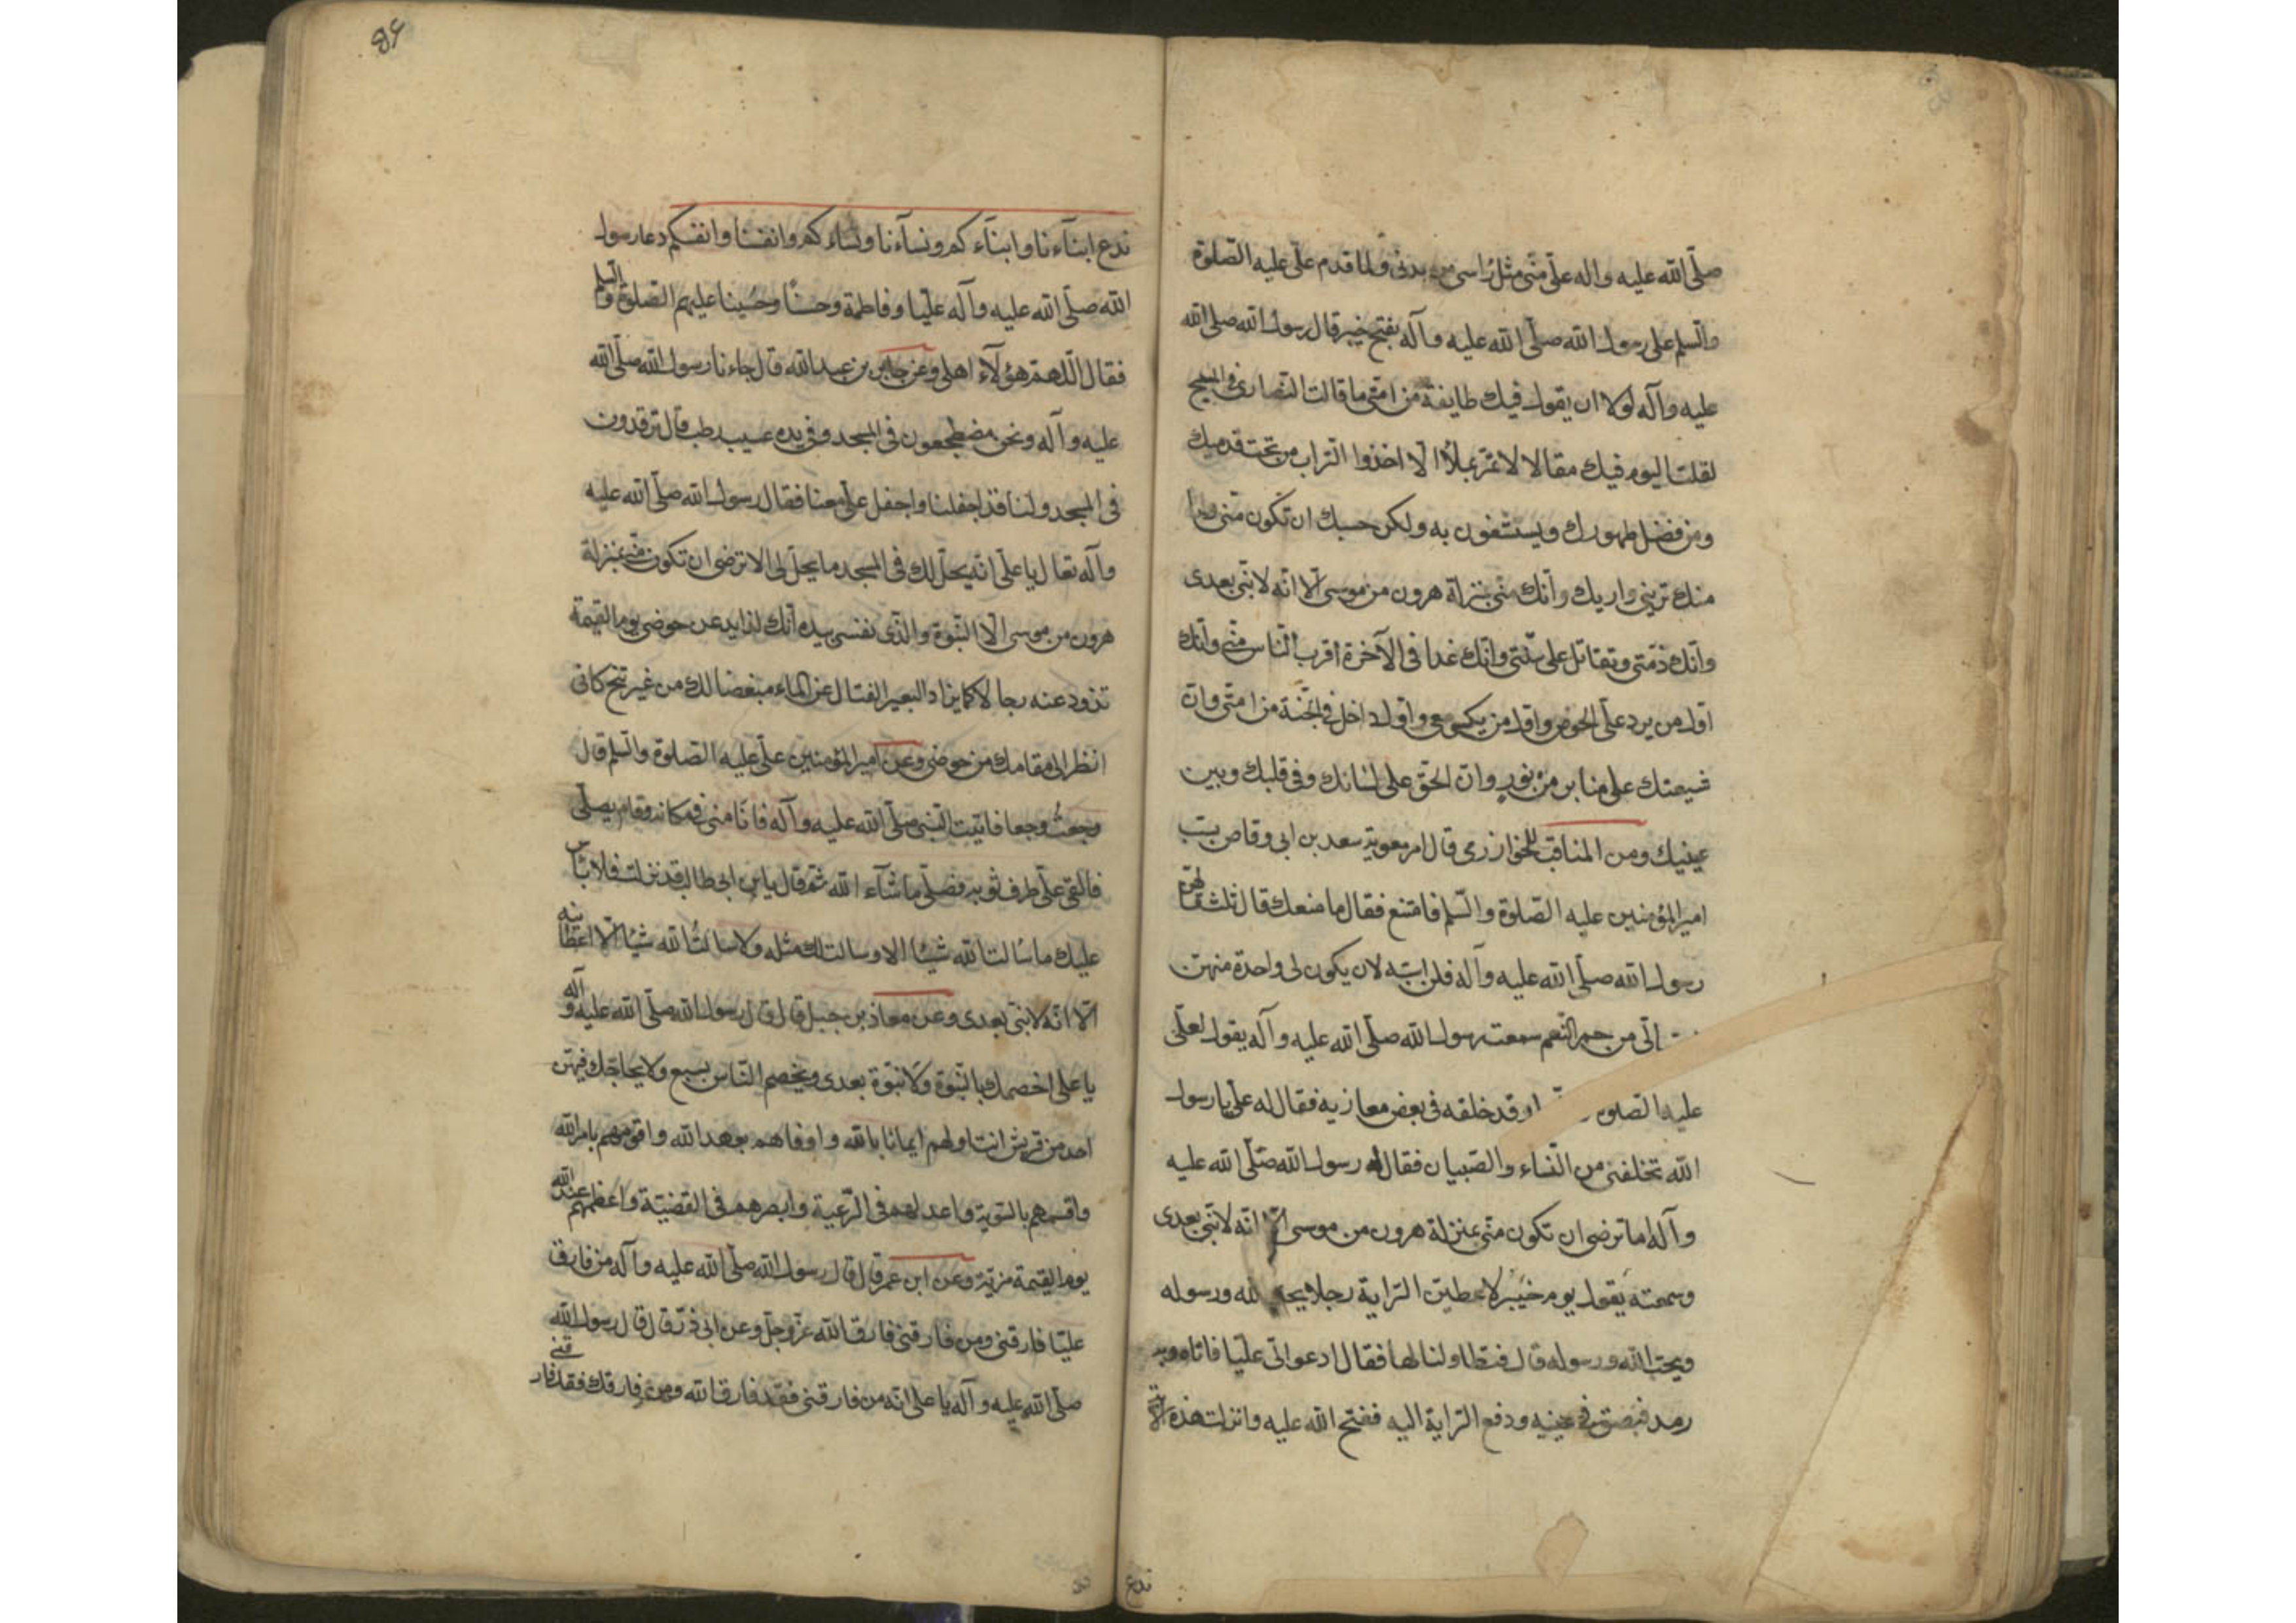 صلّى الله عليه واله علىّ منّى مثل رأسى من بدنى ولما قدم على عليه الصّلوة
والسلم على رسول الله صلّى الله عليه وآله بفتح خيبر قال رسول الله صلى الله
عليه وآله لولا ان يقول فيك طايفة من امتى ما قالت النصارى فى المسيح
لقلت اليوم فيك مقالا لا تمرّ بملأ الّا اخذوا التراب من تحت قدميك
ومن فضل طهورك ويستشفون به ولكن حسبك ان تكون منى وانا
منك ترثنى وارثك وانّك منّى بمنزلة هرون من موسى الّا انّه لا نبىّ بعدى
وانّك ذمّتى وتقاتل على سنّتى وانّك غدا فى الآخرة اقرب النّاس منّى وانّك
اوّل من يرد علىّ الحوض واوّل من يكسى معى واوّل داخل فى الجنّة من امّتى وانّ
شيعتك على منابر من نور وانّ الحقّ على لسانك وفى قلبك وبين
عينيك ومن المناقب للخوارزمى قال امر معوية سعد بن ابى وقاص بسب
امير المؤمنين عليه الصّلوة والسّلم فامتنع فقال ما منعك قال ثلث قالهنّ
رسول الله صلّى الله عليه وآله فلن اسبّه لان يكون لى واحدة منهنّ
الىّ من حمر النّعم سمعت رسول الله صلّى الله عليه وآله يقول لعلّى
عليه الصلوة وقد خلفه فى بعض مغازيه فقال له علىّ يا رسول
الله تخلفنى من النّساء والصّبيان فقال له رسول الله صلّى الله عليه
وآله اما ترضى ان تكون منّى بمنزلة هرون من موسى الّا انّه لا نبىّ بعدى
وسمعته يقول يوم خيبر لاعطينّ الرّاية رجلا يحب الله ورسوله
ويحبّه الله ورسوله قال فتطاولنا لها فقال ادعوا الىّ عليّا فاتاه وبه
رمد فبصق فى عينيه ودفع الرّاية اليه ففتح الله عليه وانزلت هذه الآية
ندع
ندع ابنآءنا وابنآءكم ونسآءنا ونساءكم وانفسنا وانفسكم دعا رسول
الله صلّى الله عليه وآله عليّا وفاطمة وحسنًا وحُسينا عليهم الصّلوة والسلم
فقال اللّهمّ هؤلآء اهلى وعن جابر بن عبد الله قال جاءنا رسول الله صلّى الله
عليه وآله ونحن مضطجعون فى المسجد وفى يده عسيب رطب قال ترقدون
فى المسجد ولنا قد اجفلنا واجفل علىّ معنا فقال رسول الله صلّى الله عليه
وآله تعال يا علىّ انّه يحلّ لك فى المسجد ما يحلّ لى الا ترضى ان تكون منّى بمنزلة
هرون من موسى الّا النّبوّة والذّى نفسى بيده انّك لذايد عن حوضى يوم القيمة
تذود عنه رجالا كما يذاد البعير الضال عن الماء بعصا لك من عوسج كانّى
انظر الى مقامك من حوضى وعن امير المؤمنين علىّ عليه الصلوة والسلم قال
وجعتُ وجعا فاتيت النّبىّ صلّى الله عليه وآله فانامنى فى مكانه وقام يصلّى
فالقى علىّ طرف ثوبه فصلّى ما شآء الله ثمّ قال يا بن ابى طالب قد برئت فلا باس
عليك ما سألت الله شيئا الّا وسالت لك مثله ولا سالتُ الله شيئا الّا اعطانيه
الّا انّه لا نبىّ بعدى وعن معاذ بن جبل قال قال رسول الله صلّى الله عليه وآله
يا على اخصمك بالنّبوّة ولا نبوّة بعدى وتخصم النّاس بسبع ولا يحاجّك فيهنّ
احد من قريش انت اولهم ايمانا بالله واوفاهم بعهد الله واقومهم بامر الله
واقسمهم بالسّويّة واعدلهم فى الرّعية وابصرهم فى القضيّة واعظمهم عند الله
يوم القيمة مزيّة وعن ابن عمر قال قال رسول الله صلّى الله عليه وآله من فارق
عليّا فارقنى ومن فارقنى فارق الله عزّ وجلّ وعن ابى ذرّ قال قال رسول الله
صلّى الله عليه وآله يا على انّه من فارقنى فقد فارق الله ومن فارقك فقد فارقنى